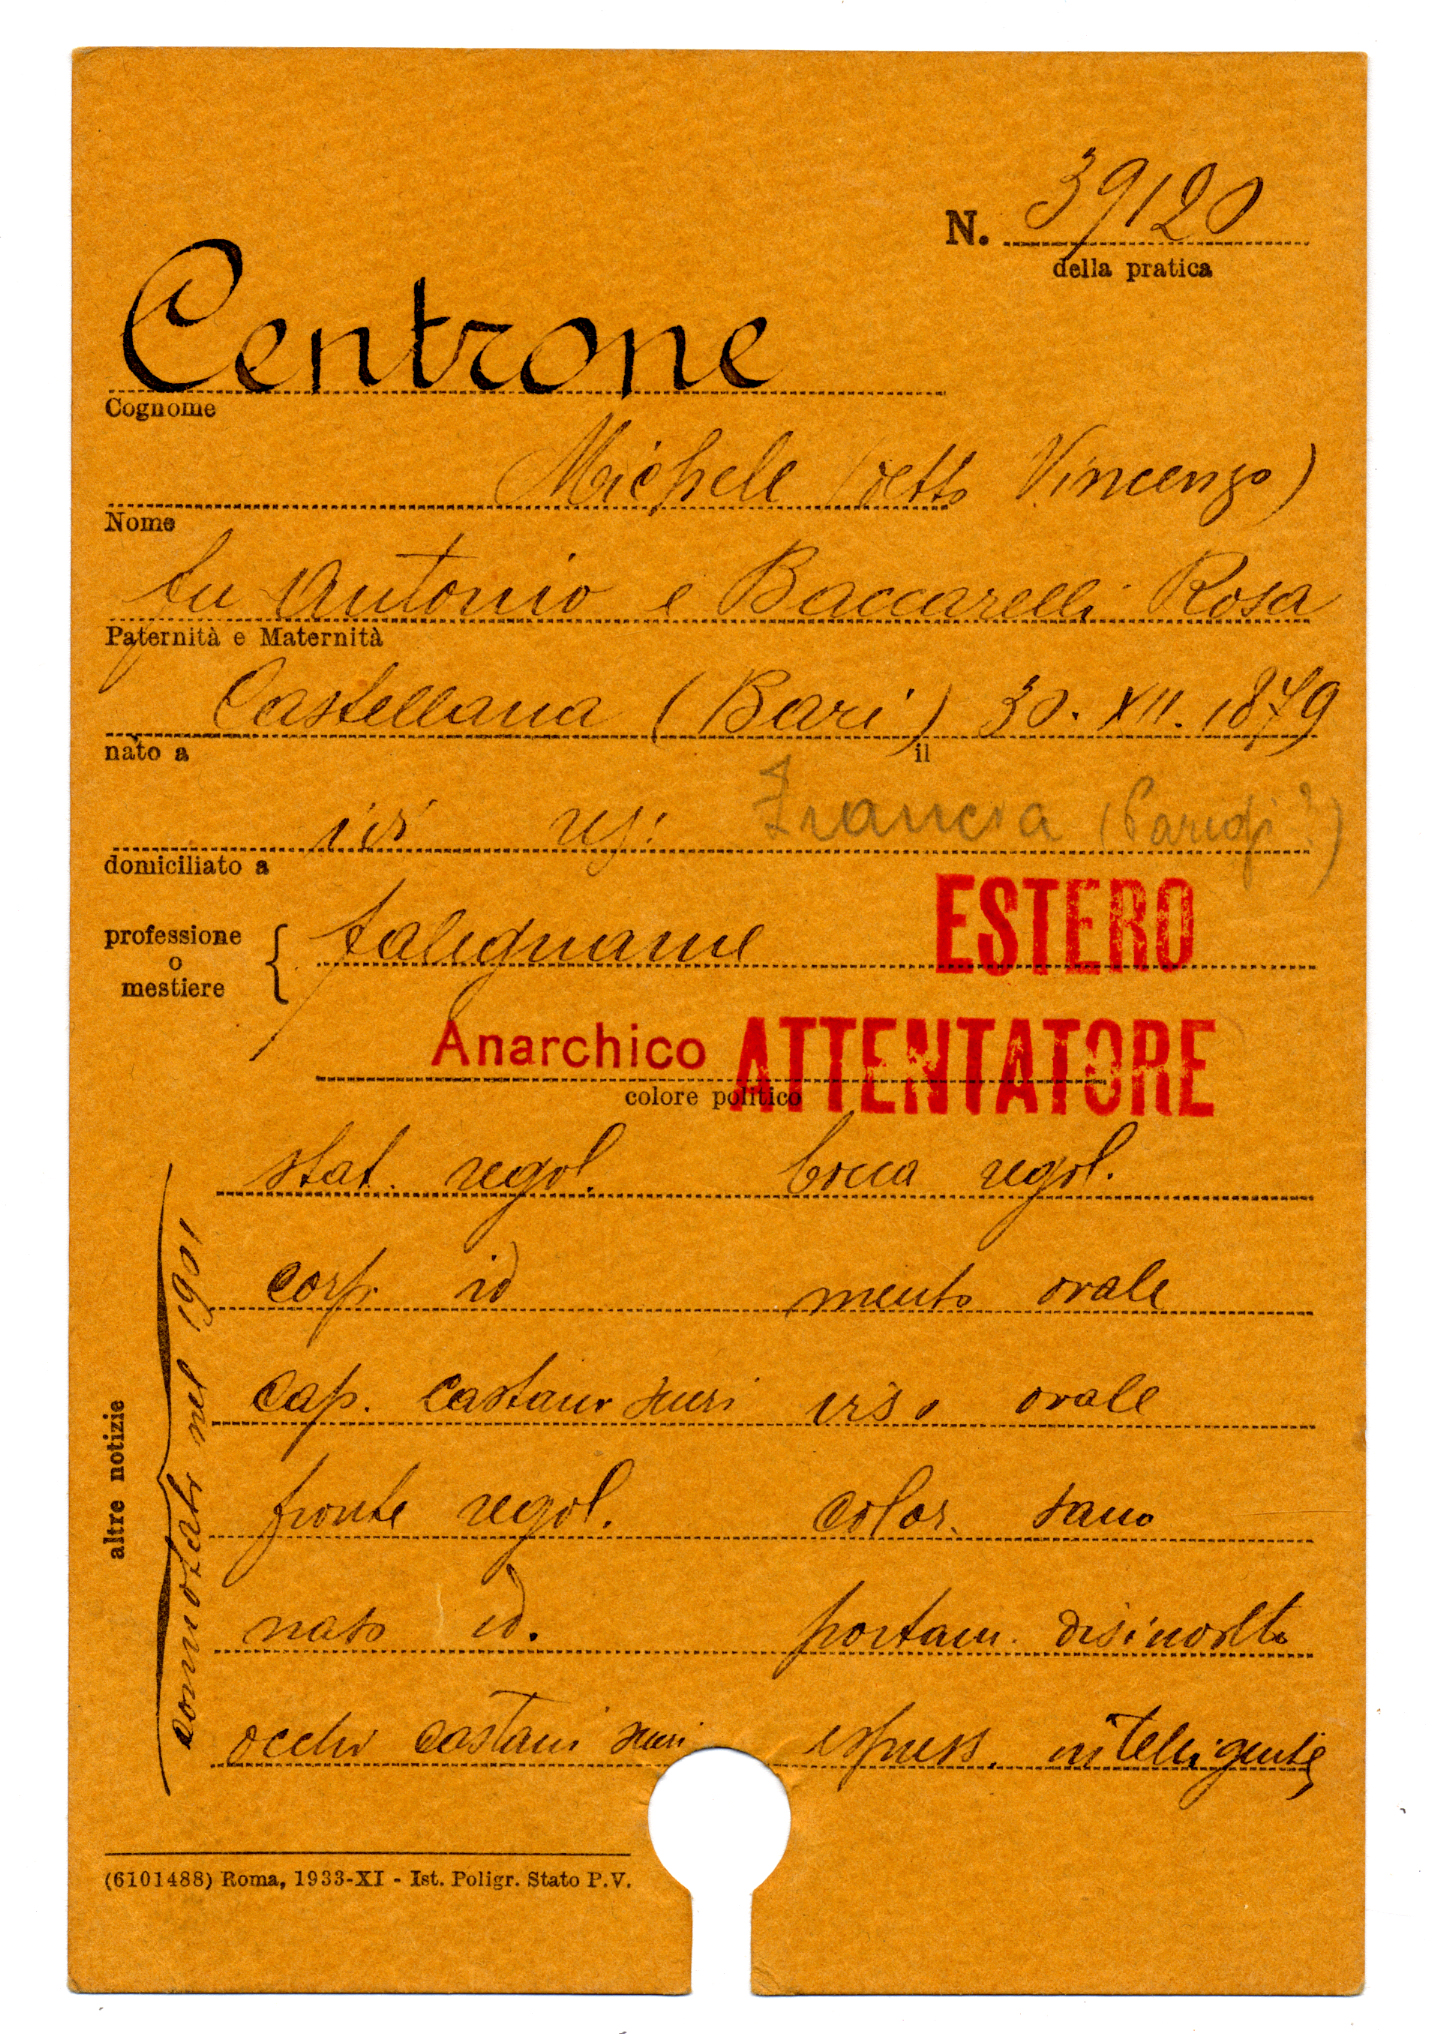 N. 39120
della pratica
Centrone
Cognome
Michele (detto Vincenzo)
Nome
fu Antonio e Baccarelli Rosa
Paternità e Maternità
Castellana (Bari) 30.XII.1879
nato a il
ivi res: Francia (Parigi?)
domiciliato a
ESTERO
professione
o
mestiere
falegname
Anarchico ATTENTATORE
colore politico
altre notizie
connotati nel 1901
stat. regol. bocca regol.
corp. id mento ovale
cap. castano scuri viso ovale
fronte regol. color. sano
naso id. portam. disinvolto
occhi castani scuri espress. intelligente
(6101488) Roma, 1933-XI - Ist. Poligr. Stato P.V.